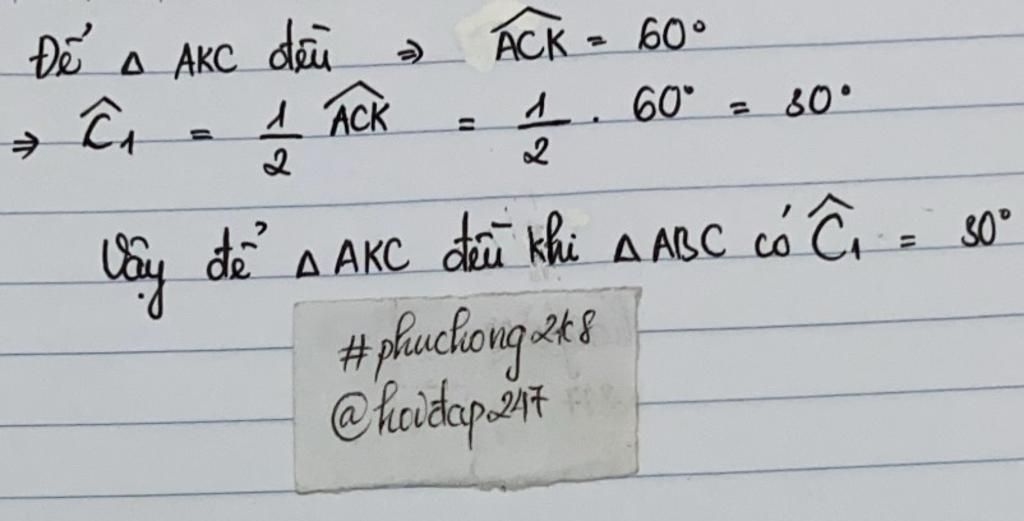 Để Δ AKC đều ⇒ \widehat{ACK} = 60°
⇒ \widehat{C}₁ = \frac{1}{2} \widehat{ACK} = \frac{1}{2} . 60° = 30°
Vậy để Δ AKC đều khi Δ ABC có \widehat{C}₁ = 30°
#phuchong2k8
@hoidap247